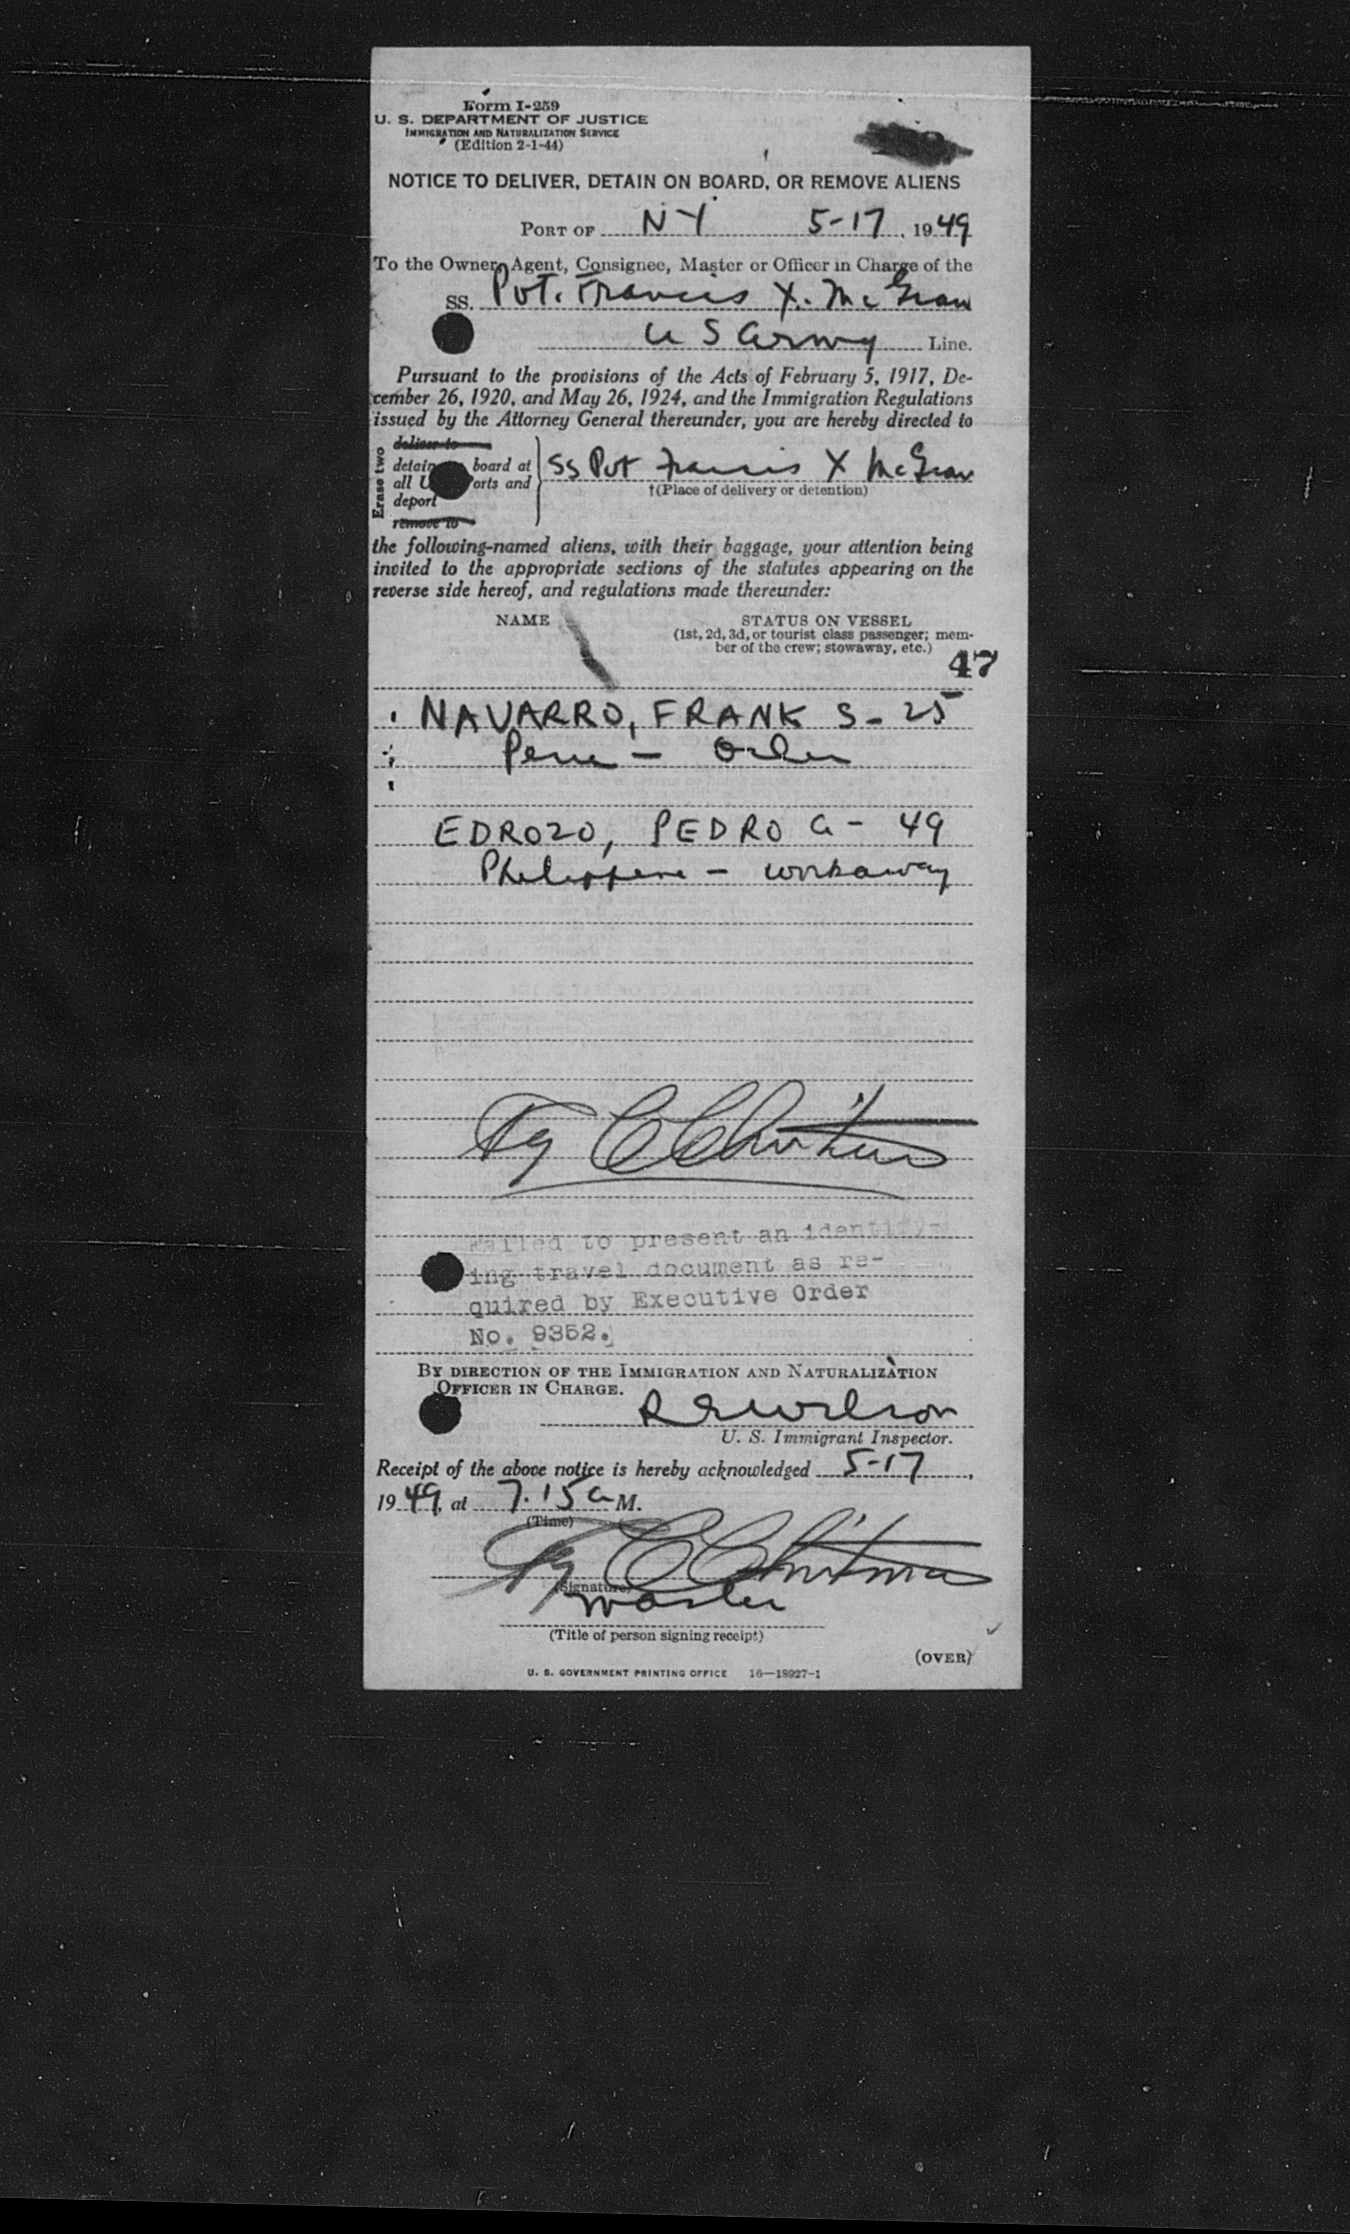 Form I-259
U. S. DEPARTMENT OF JUSTICE
IMMIGRATION AND NATURALIZATION SERVICE
(Edition 2-1-44)
NOTICE TO DELIVER, DETAIN ON BOARD, OR REMOVE ALIENS
PORT OF NY 5-17, 1949
To the Owner, Agent, Consignee, Master or Officer in Charge of the
SS. Pvt. Francis X. McGraw
US Army Line.
Pursuant to the provisions of the Acts of February 5, 1917, De-
cember 26, 1920, and May 26, 1924, and the Immigration Regulations
issued by the Attorney General thereunder, you are hereby directed to
Erase two
deliver to
detain board at
all U orts and
deport
remove to
SS Pvt Francis X McGraw
†(Place of delivery or detention)
the following-named aliens, with their baggage, your attention being
invited to the appropriate sections of the statutes appearing on the
reverse side hereof, and regulations made thereunder:
NAME STATUS ON VESSEL
(1st, 2d, 3d, or tourist class passenger; mem-
ber of the crew; stowaway, etc.)
47
NAVARRO, FRANK S - 25
Peru - Oiler
EDROZO, PEDRO G - 49
Philippine - workaway
Failed to present an identify-
ing travel document as re-
quired by Executive Order
No. 9352.
BY DIRECTION OF THE IMMIGRATION AND NATURALIZATION
OFFICER IN CHARGE.
R E Wilson
U. S. Immigrant Inspector.
Receipt of the above notice is hereby acknowledged 5-17,
1949, at 7.15 a M.
(Time)
(Signature)
Master
(Title of person signing receipt)
(OVER)
U. S. GOVERNMENT PRINTING OFFICE 16—18927-1